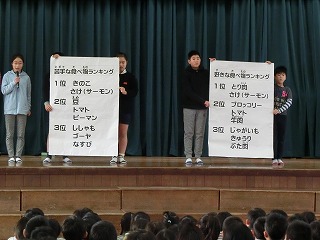 苦手な食べ物ランキング
1位 きのこ
さけ(サーモン)
2位 豆
トマト
ピーマン
3位 ししゃも
ゴーヤ
なすび
好きな食べ物ランキング
1位 とり肉
さけ(サーモン)
2位 ブロッコリー
トマト
牛肉
3位 じゃがいも
きゅうり
ぶた肉